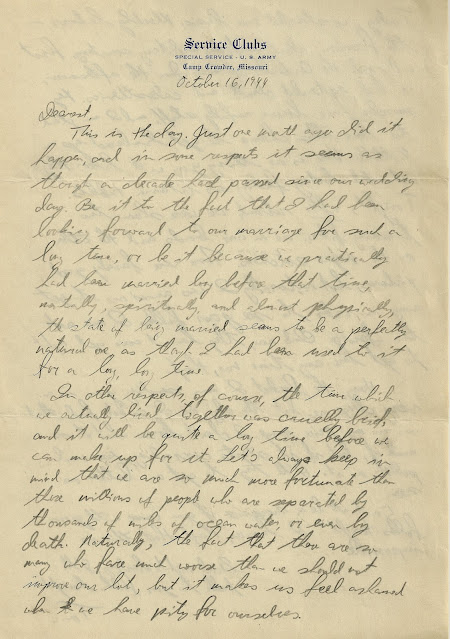 Service Clubs
SPECIAL SERVICE - U. S. ARMY
Camp Crowder, Missouri
October 16, 1944
Dearest,
This is the day. Just one month ago did it
happen, and in some respects it seems as
though a decade had passed since our wedding
day. Be it to the fact that I had been
looking forward to our marriage for such a
long time, or be it because we practically
had been married long before that time,
mentally, spiritually and almost physically,
the state of being married seems to be a perfectly
natural one, as though I had been used to it
for a long, long time.
In other respects, of course, the time which
we actually lived together was cruelly brief
and it will be quite a long time before we
can make up for it. Let's always keep in
mind that we are so much more fortunate than
those millions of people who are separated by
thousands of miles of ocean water, or even by
death. Naturally, the fact that there are so
many who fare much worse than we should not
improve our lot, but it makes us feel ashamed
when we have pity for ourselves.